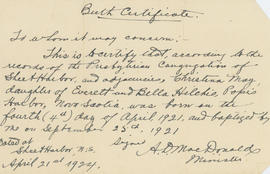 Birth Certificate.
To whom it may concern:-
This is to certify that, according to the
records of the Presbyterian Congregation of
Sheet Harbor, and adjacencies, Christina May
daughter of Everett and Bella Hilchie, Popes
Harbor, Nova Scotia, was born on the
fourth (4th) day of April 1921, and baptised by
me on September 25th, 1921
Dated at
Sheet Harbor N.S.
April 21st 1924.
Signed
A. D. MacDonald
Minister